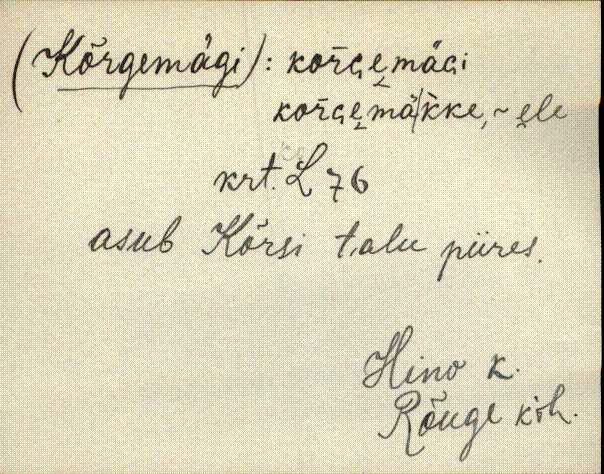 (Kõrgemägi): korɢe̮mäɢi
korɢe̮mä|kke, ~ e̮le
krt. L 76
asub Kõrsi talu piires.
Hino k.
Rõuge kih.